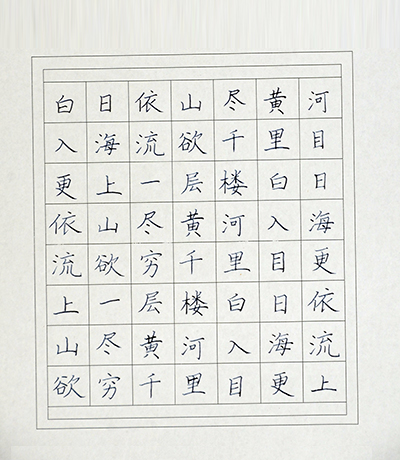 白日依山尽黄河
入海流欲千里目
更上一层楼白日
依山尽黄河入海
流欲穷千里目更
上一层楼白日依
山尽黄河入海流
欲穷千里目更上